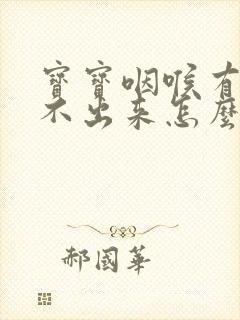 寶寶咽喉有
不出來怎麼
郝國華